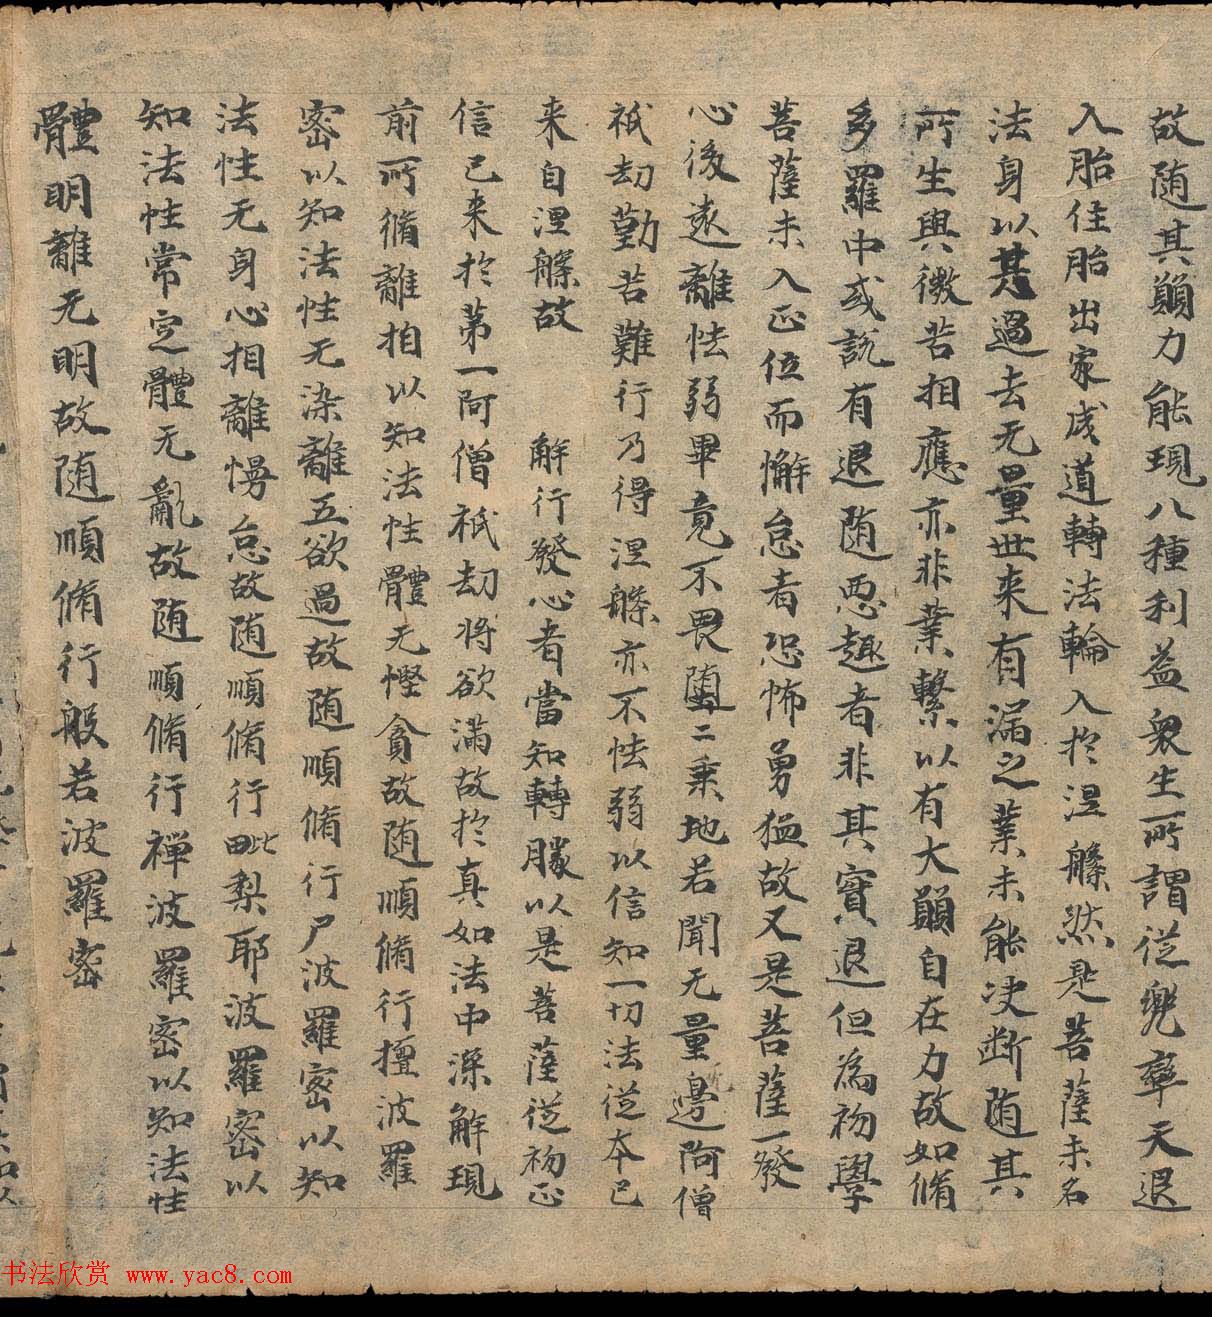 故随其願力能現八種利益衆生所謂従兜率天退
入胎住胎出家成道轉法輪入扵涅槃然是菩薩未名
法身以其過去无量世来有漏之業未能決断随其
所生與微苦相應亦非業繫以有大願自在力故如脩
多羅中或説有退随惡趣者非其實退但為初學
菩薩未入正位而懈怠者恐怖勇猛故又是菩薩一發
心後遠離怯弱畢竟不畏墮二乗地若聞无量邊阿僧
祇劫勤苦難行乃得涅槃亦不怯弱以信知一切法従本已
来自涅槃故 解行發心者當知轉勝以是菩薩従初正
信已来扵第一阿僧祇劫将欲滿故扵真如法中深解現
前所脩離相以知法性體无慳貪故随順脩行檀波羅
密以知法性无染離五欲過故随順脩行尸波羅密以知
法性无身心相離慢怠故随順脩行毗梨耶波羅密以
知法性常定體无亂故随順脩行禅波羅密以知法性
體明離无明故随順脩行般若波羅密
书法欣赏 www.yac8.com